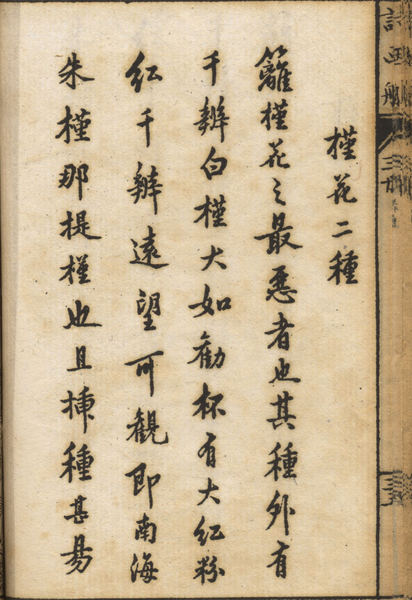 槿花二種
籬槿花之最惡者也其種外有
千瓣白槿大如勸杯有大紅粉
紅千瓣遠望可觀即南海
朱槿那提槿也且插種甚易